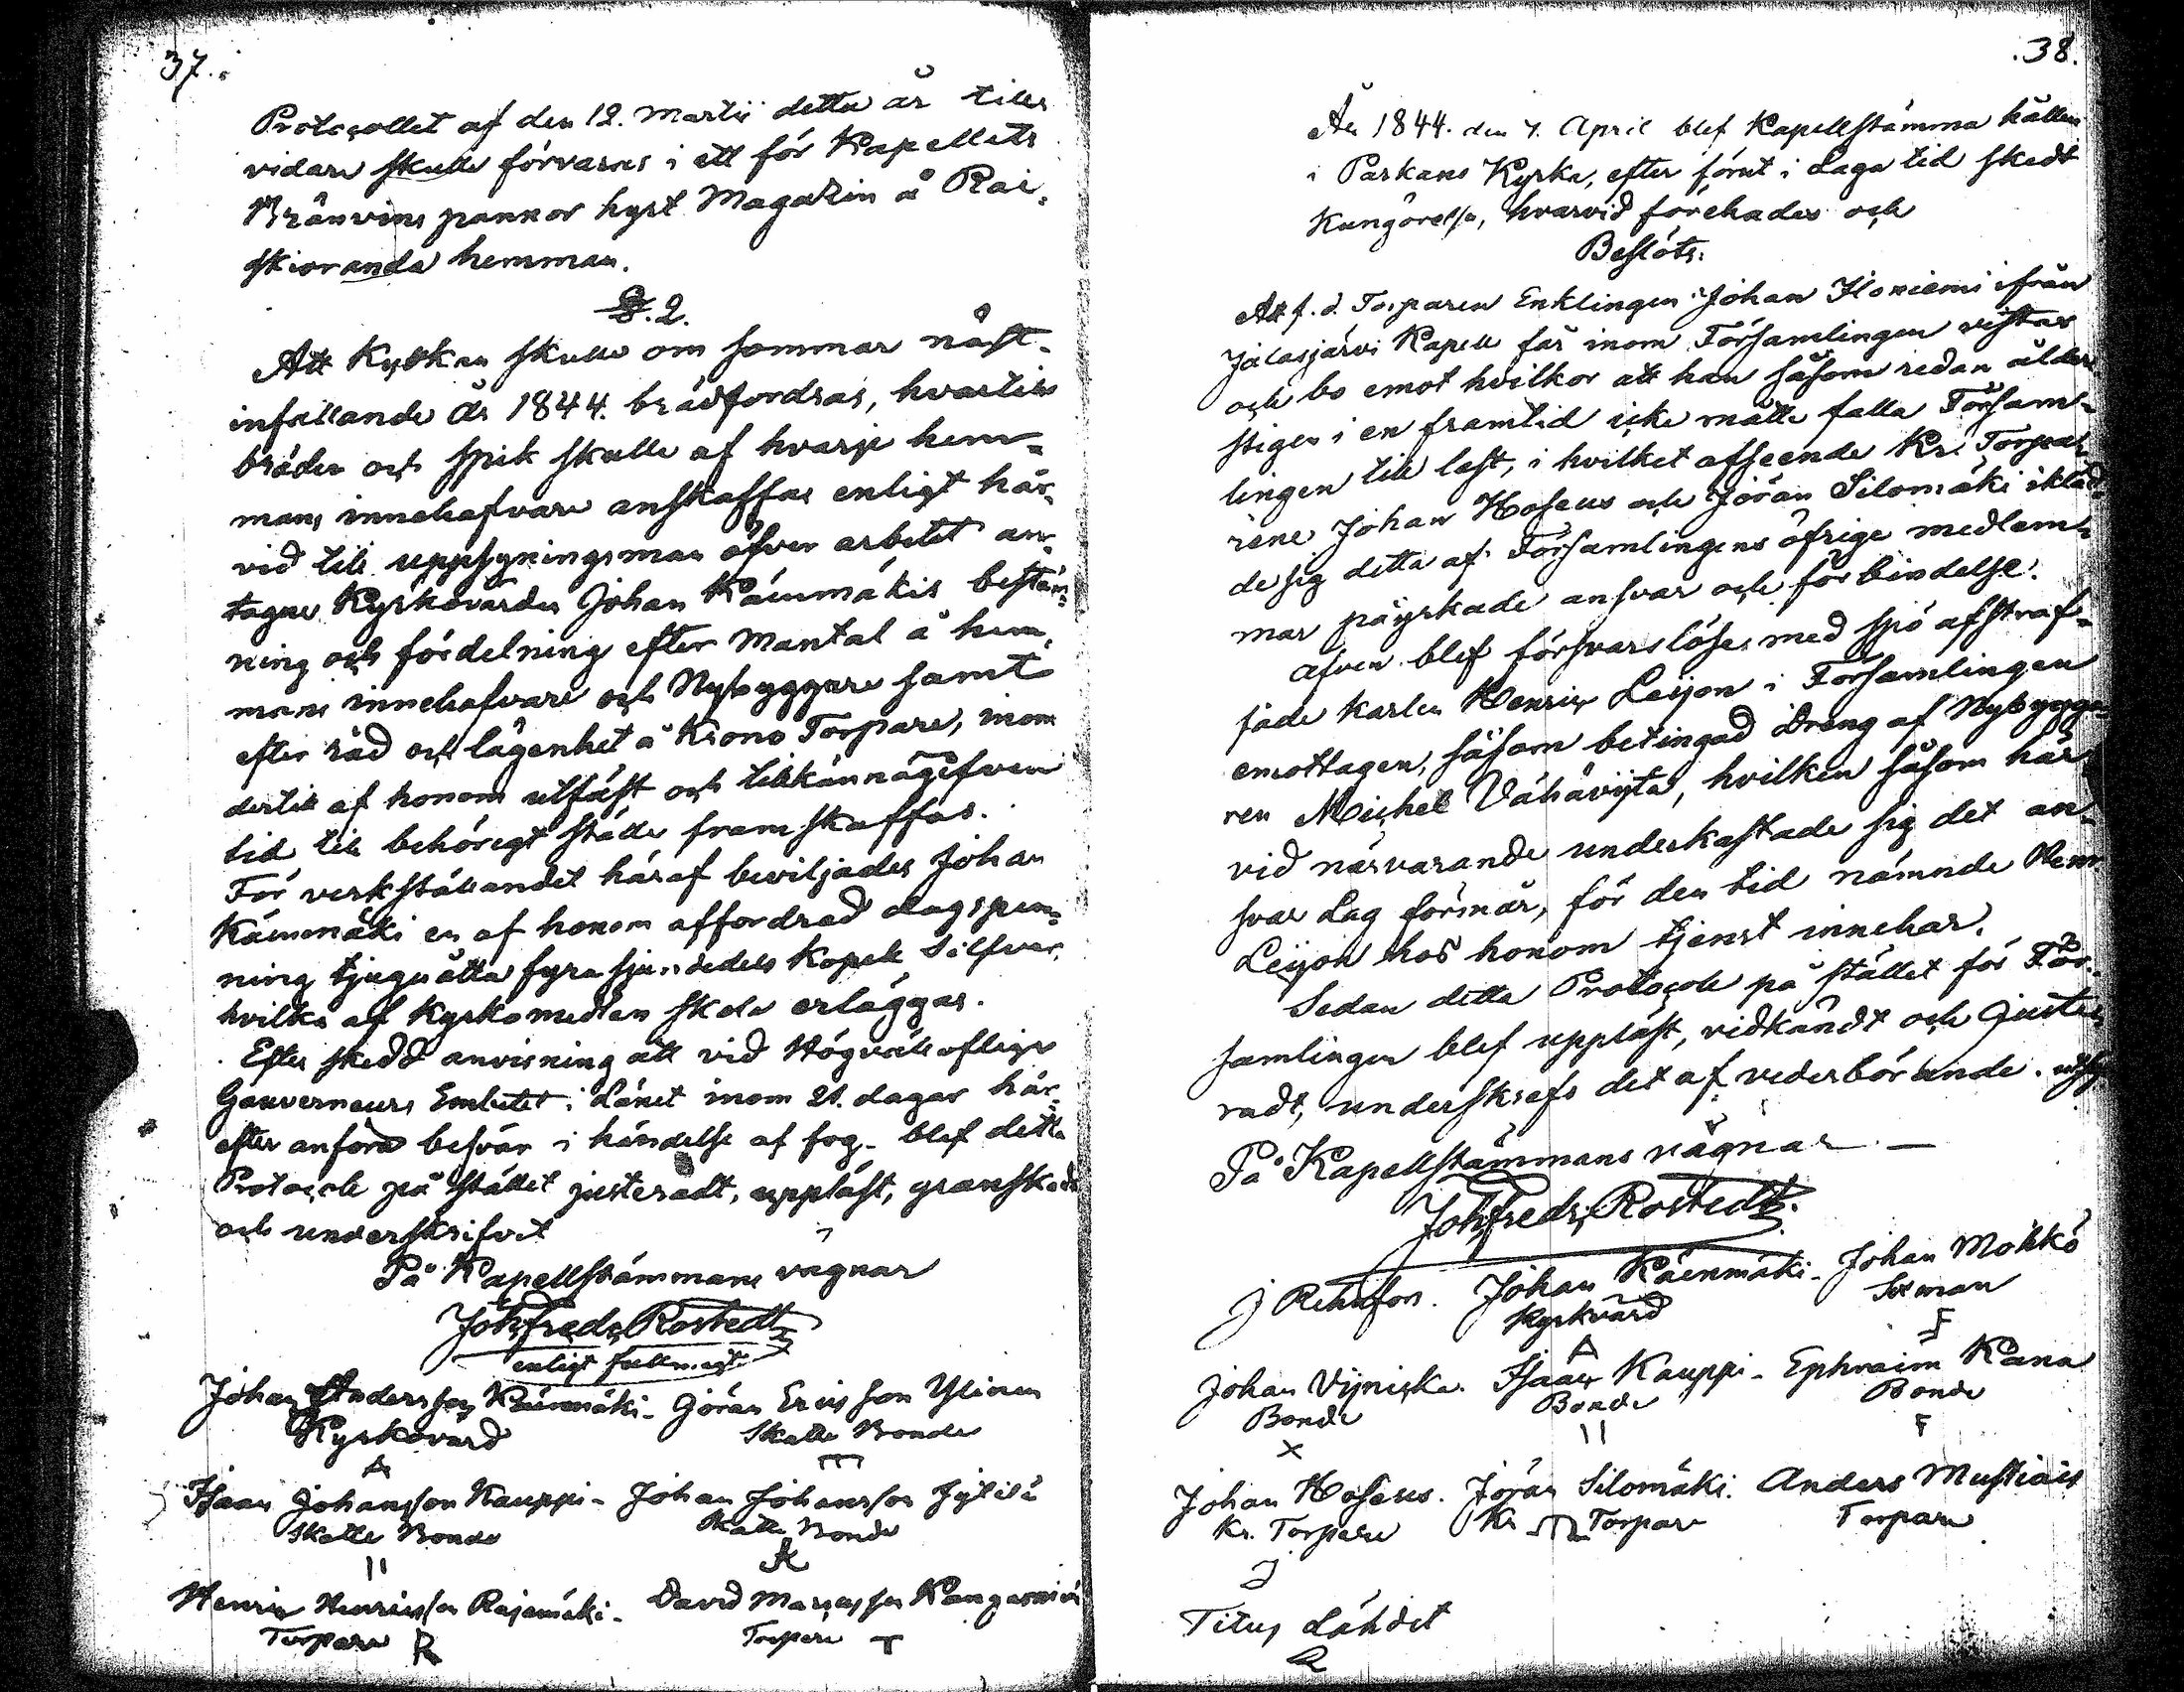 37.
Protocollet af den 12. Martii detta år tills
vidare skulle förvaras i ett för Kapellets
Bränvins pannor hyrt Magazin å Rai-
skioranda hemman.
§. 2.
Att Kyrkan skulle om sommar näst-
infallande år 1844. brädfordras, hvartill
bräder och spik skulle af hvarje hem-
mans innehafvare anskaffas enligt här-
vid till uppsyningsman öfver arbetet an-
tagne Kyrkovärden Johan Käenmäkis bestäm-
ning och fördelning efter Mantal å hem-
mans innehafvare och Nybyggare samt
efter råd och lägenhet å Krono Torpare, inom
dertill af honom utfäst och tillkännagifven
tid till behörigt ställe framskaffas.
För verkställandet häraf beviljades Johan
Käenmäki en af honom affordrad dagspen-
ning tjuguåtta fyra sjundedels Kopek Silfver,
hvilka af Kyrkomedlen skola erläggas.
Efter skedd anvisning att vid Högvällofliga
Gouverneurs Embetet i Länet inom 21. dagar här-
efter anföra besvär i händelse af fog. blef detta
Protocoll på stället justeradt, uppläst, granskadt
och underskrifvet
På Kapellstämmans vägnar
Joh. Fredr. Rostedt
enligt fullmagt
Johan Andersson Käenmäki - Göran Ericsson Ylinen
Kyrkovärd Skatte Bonde
A m
Isaac Johansson Kauppi - Johan Johansson
Skatte Bonde Skatte Bonde
II K
Henric Henricsson Rajamäki - David Marcusson
Torpare R Torpare T
38.
År 1844. den 7. April blef Kapellstämma hållen
i Parkano Kyrka, efter förut i Laga tid skedt
Kungörelse, hvarvid förehades och
Beslöts:
Att f. d. Torparen Enklingen Johan Iloniemi ifrån
Jalasjärvi Kapell får inom Församlingen vistas
och bo emot hvilkor att han såsom redan ålder-
stigen i en framtid icke måtte falla Försam-
lingen till last, i hvilket afseende Kr. Torpar-
rene Johan Hoseus och Jöran Silomäki iklädde
de sig detta af Församlingens öfrige medlem-
mar påyrkade ansvar och förbindelse.
Äfven blef försvarslöse, med spö afstraf-
fade karlen Henric Leijon i Församlingen
emottagen, såsom betingad Dräng af Nybygga-
ren Michel Vähäviita, hvilken såsom här
vid närvarande underkastade sig det an-
svar Lag förmår, för den tid nämnde Henr.
Leijon hos honom tjenst innehar.
Sedan detta Protocoll på stället för För-
samlingen blef uppläst, vidkändt och Juste-
radt, underskrefs det af vederbörande.
På Kapellstämmans vägnar —
Joh. Fredr. Rostedt.
J Rehnfors. Johan Käenmäki - Johan Mökkö
Kyrkvärd Sexman
A F
Johan Vijniska. Isaac Kauppi - Ephraim Kana
Bonde Bonde Bonde
X II F
Johan Hoseus. Jöran Silomäki. Anders Mustiais
Kr. Torpare Kr Torpare Torpare
J
Titus Lähdet